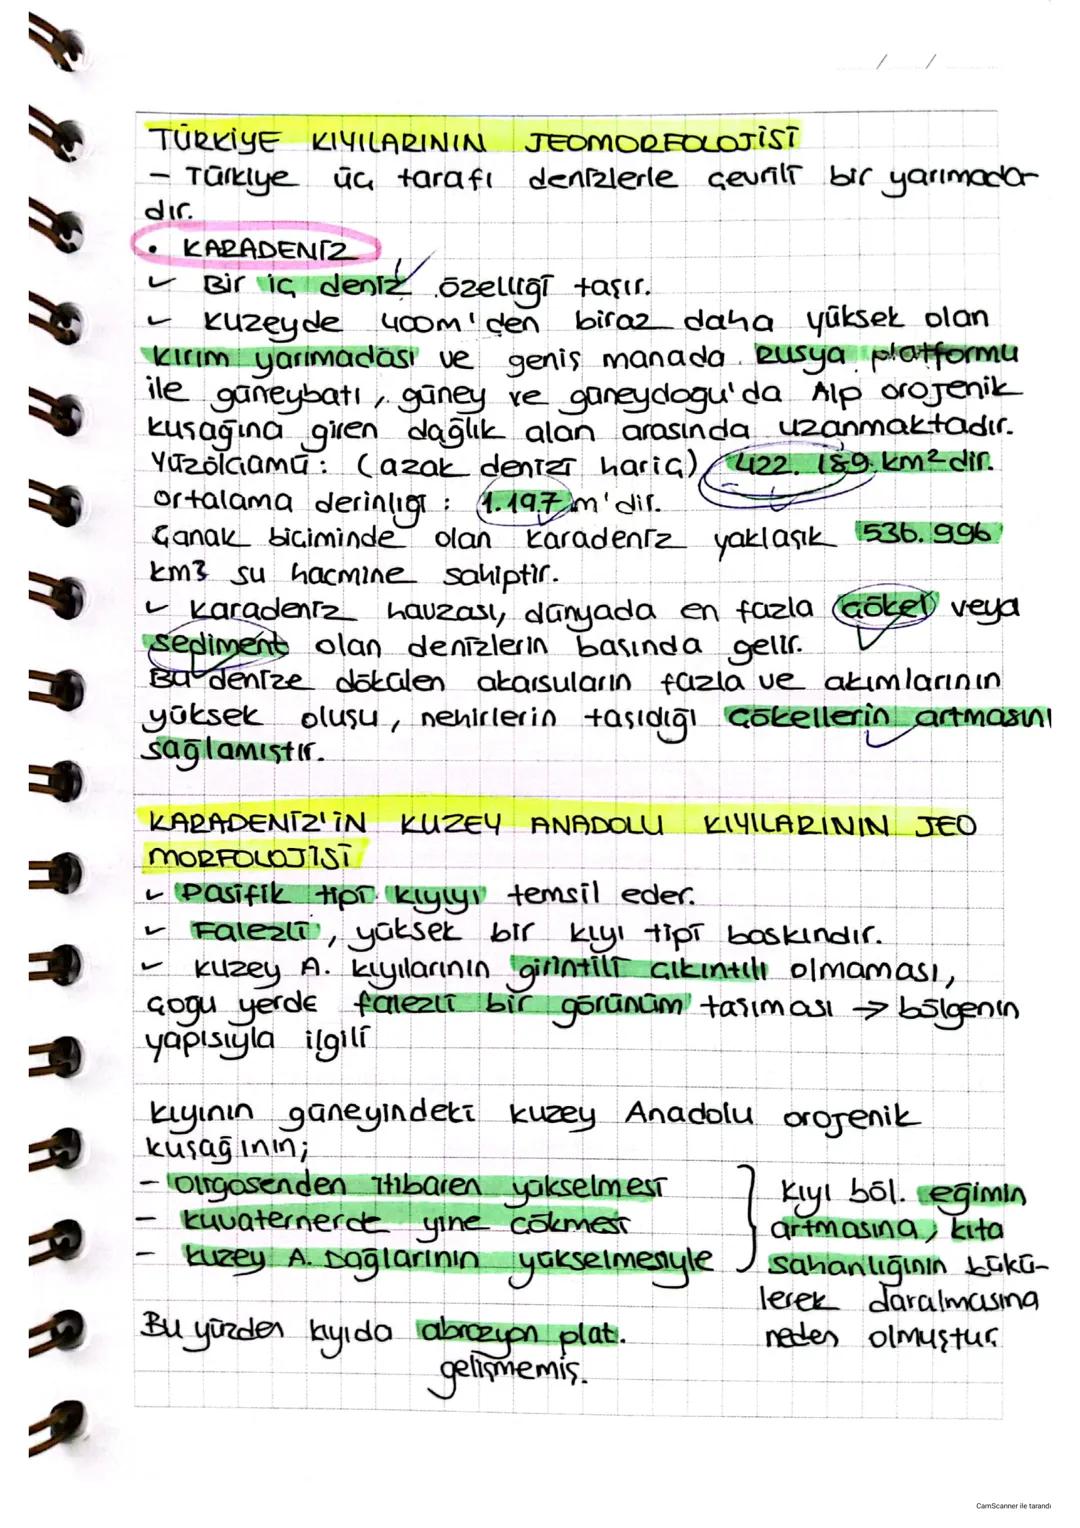 / /
TÜRKİYE KIYILARININ JEOMORFOLOJİSİ
- Türkiye üç tarafı denizlerle çevrili bir yarımada-
dır.
• KARADENİZ
✓ Bir iç deniz özelliği taşır.
✓ Kuzeyde 400m'den biraz daha yüksek olan
Kırım yarımadası ve geniş manada Rusya platformu
ile güneybatı, güney ve güneydoğu'da Alp orojenik
kuşağına giren dağlık alan arasında uzanmaktadır.
Yüzölçümü: (azak denizi hariç) 422. 189. km² dir.
Ortalama derinliği : 1.197 m'dir.
Çanak biçiminde olan Karadeniz yaklaşık 536.996
km³ su hacmine sahiptir.
✓ Karadeniz havzası, dünyada en fazla çökel veya
sediment olan denizlerin başında gelir.
Bu denize dökülen akarsuların fazla ve akımlarının
yüksek oluşu, nehirlerin taşıdığı çökellerin artmasını
sağlamıştır.
KARADENİZ'İN KUZEY ANADOLU KIYILARININ JEO
MORFOLOJİSİ
✓ Pasifik tipi kıyıyı temsil eder.
✓ Falezli, yüksek bir kıyı tipi baskındır.
✓ Kuzey A. kıyılarının girintili çıkıntılı olmaması,
çoğu yerde falezli bir görünüm taşıması → bölgenin
yapısıyla ilgili
Kıyının güneyindeki kuzey Anadolu orojenik
kuşağının;
- Oligosenden itibaren yükselmesi
- Kuvaternerde yine çökmesi
- Kuzey A. Dağlarının yükselmesiyle
Kıyı böl. eğimin
artmasına, kıta
sahanlığının bükü-
lerek daralmasına
neden olmuştur.
Bu yüzden kıyıda abrazyon plat.
gelişmemiş.
CamScanner ile tarandı